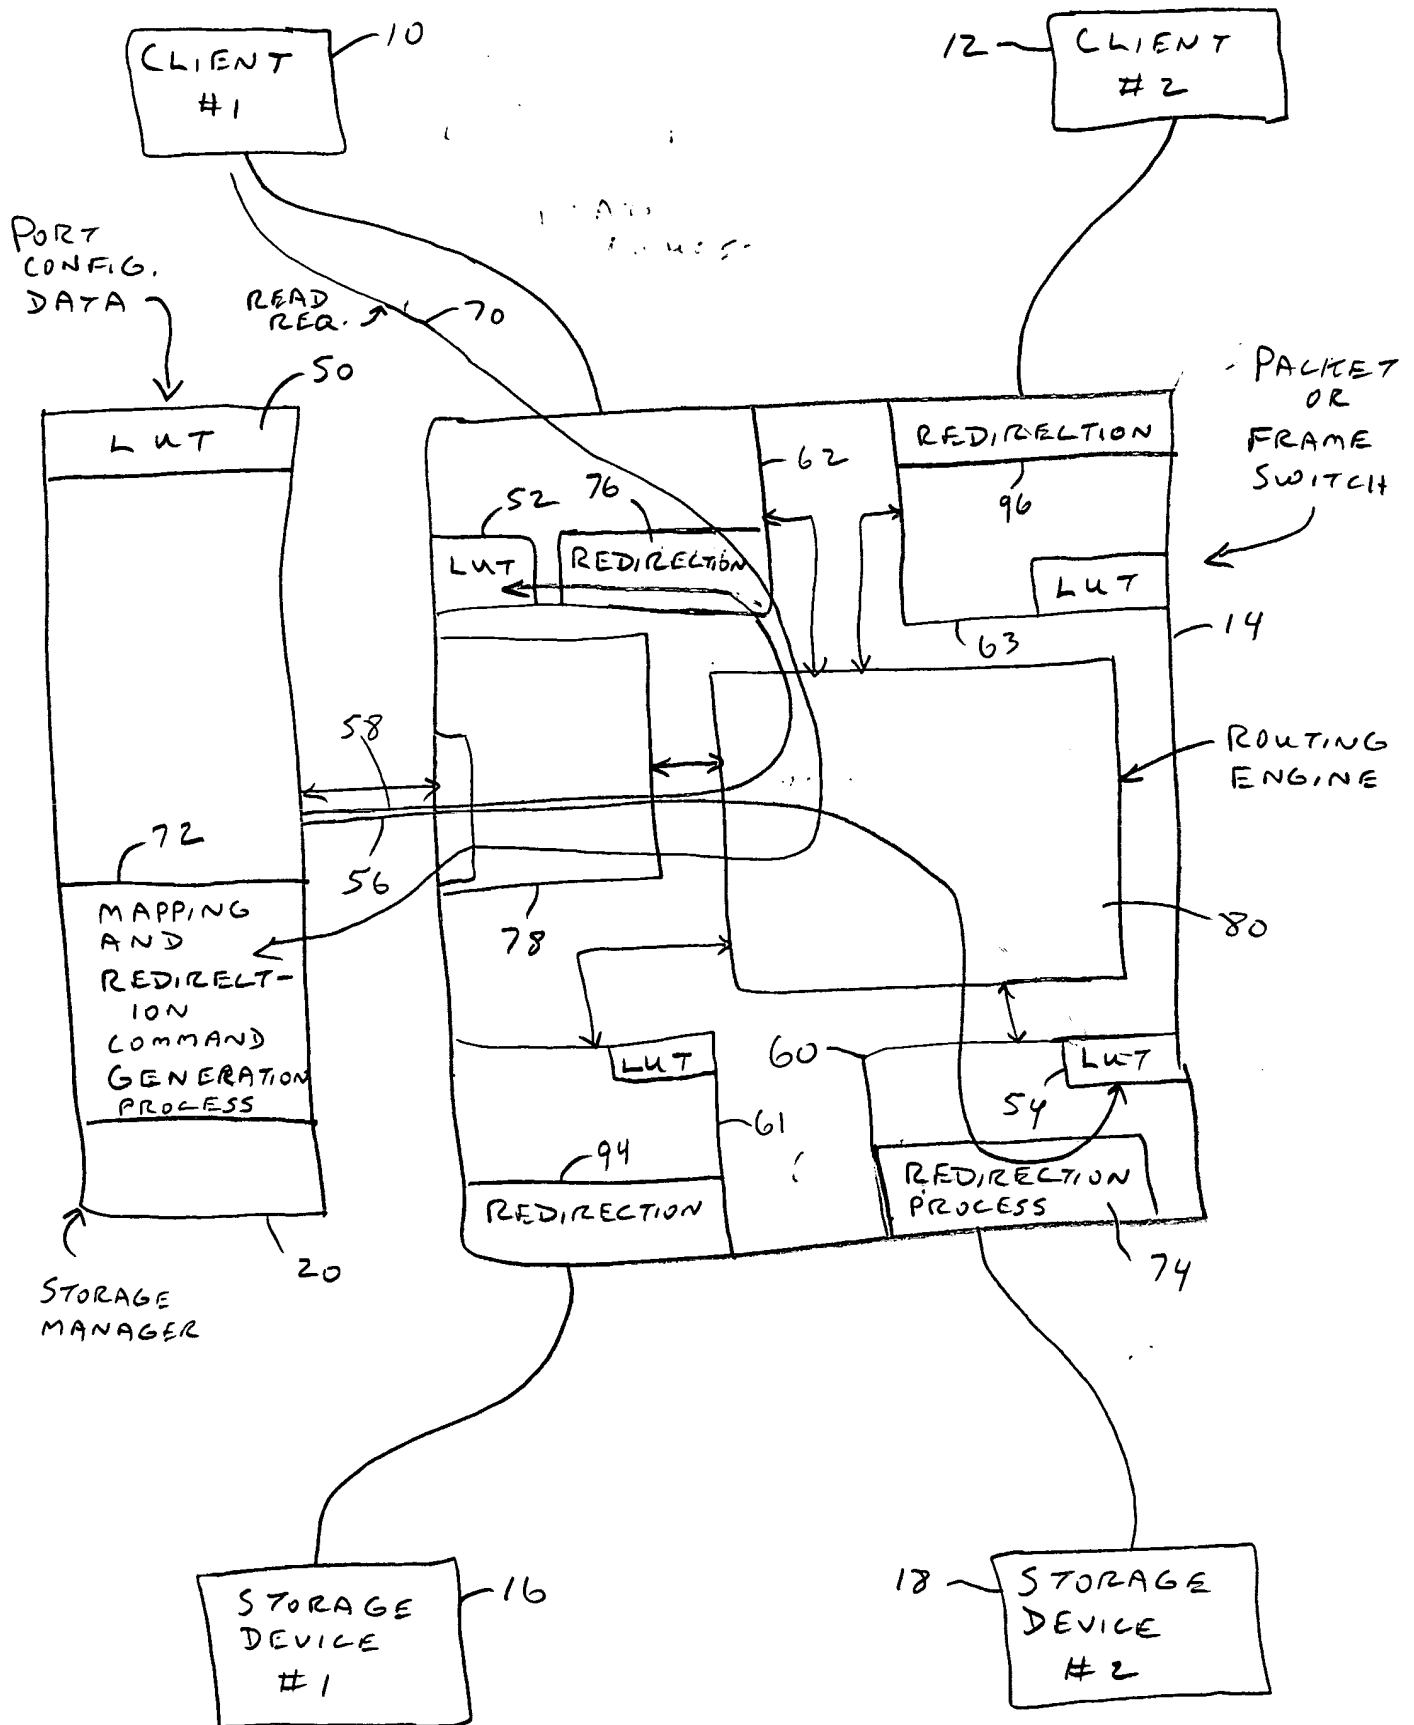 CLIENT
#1
10
12
CLIENT
#2
PORT
CONFIG.
DATA
READ
REQ.
70
50
LUT
PACKET
OR
FRAME
SWITCH
REDIRECTION
96
62
76
52
LUT
REDIRECTION
LUT
63
14
58
56
ROUTING
ENGINE
72
MAPPING
AND
REDIRECT-
ION
COMMAND
GENERATION
PROCESS
78
80
LUT
60
LUT
54
61
94
REDIRECTION
REDIRECTION
PROCESS
74
20
STORAGE
MANAGER
STORAGE
DEVICE
#1
16
18
STORAGE
DEVICE
#2